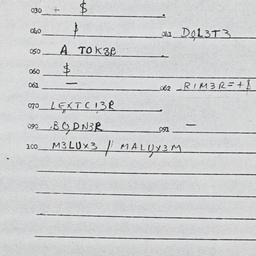 030 + $
040 $ 041 DOL3T3
050 A TOK3R
060 $
061 — 062 RIM3R=+1
070 LEXTCI3R
090 BODN3R 091 —
100 M3LUX3 // MALUX3M